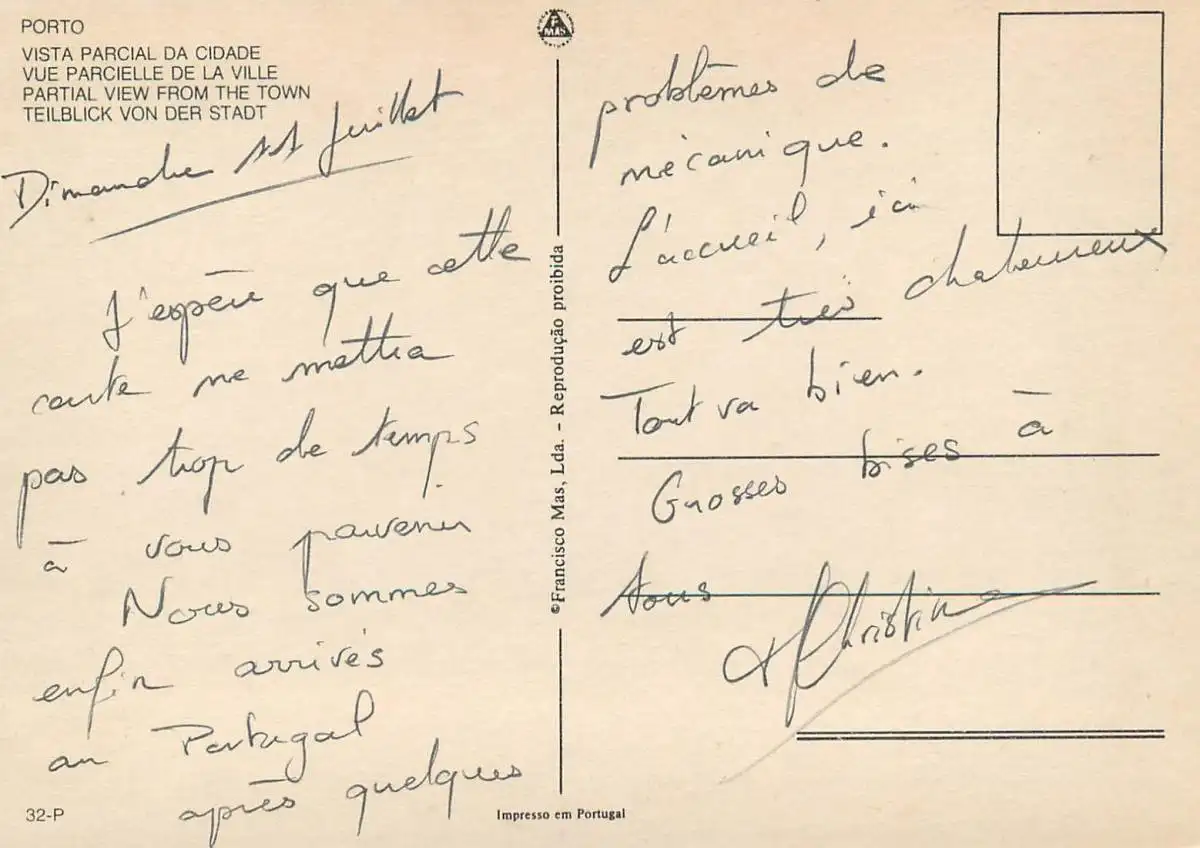 PORTO
VISTA PARCIAL DA CIDADE
VUE PARCIELLE DE LA VILLE
PARTIAL VIEW FROM THE TOWN
TEILBLICK VON DER STADT
Dimanche 11 Juillet
J'espère que cette
carte ne mettra
pas trop de temps
à vous parvenir
Nous sommes
enfin arrivés
au Portugal
après quelques
32-P
F
MAS
©Francisco Mas, Lda. - Reprodução proibida
Impresso em Portugal
problèmes de
mécanique.
L'accueil, ici
est très chaleureux
Tout va bien.
Grosses bises à
tous
Christine